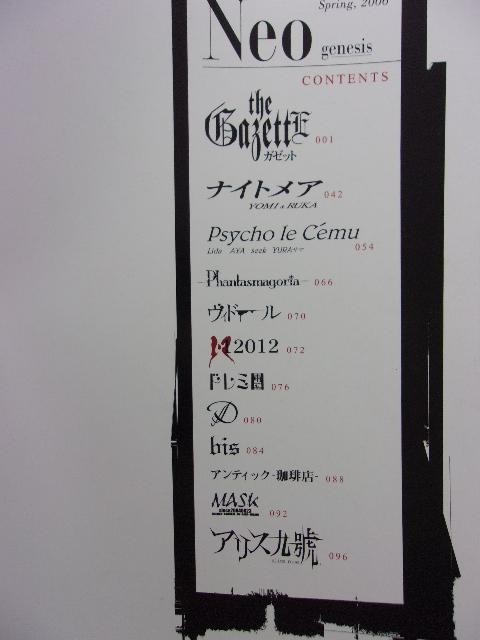 Spring, 2006
Neo genesis
CONTENTS
the
GazettE 001
ガゼット
ナイトメア 042
YOMI & RUKA
Psycho le Cému 054
Lida AYA seek YURAサマ
Phantasmagoria 066
ヴィドール 070
2012 072
ドレミ團 076
D 080
bis 084
アンティック-珈琲店- 088
MASK 092
アリス九號 096